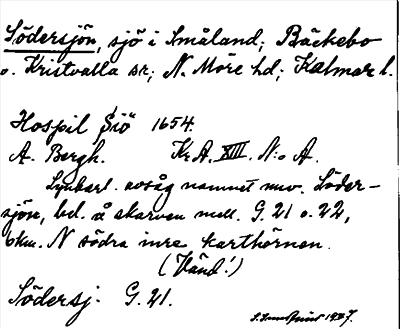 Södersjön, sjö i Småland; Bäckebo
o. Kristvalla sr; N. Möre hd; Kalmar l.
Hospil Siö 1654.
A. Bergh. Kr.A. XIII. N:o A.
namnet nuv. Söder-
sjön, bel. å skarven mell. G. 21 o. 22,
6 km. N södra inre karthörnen.
(Vänd!)
Södersj. G. 21.
1927.